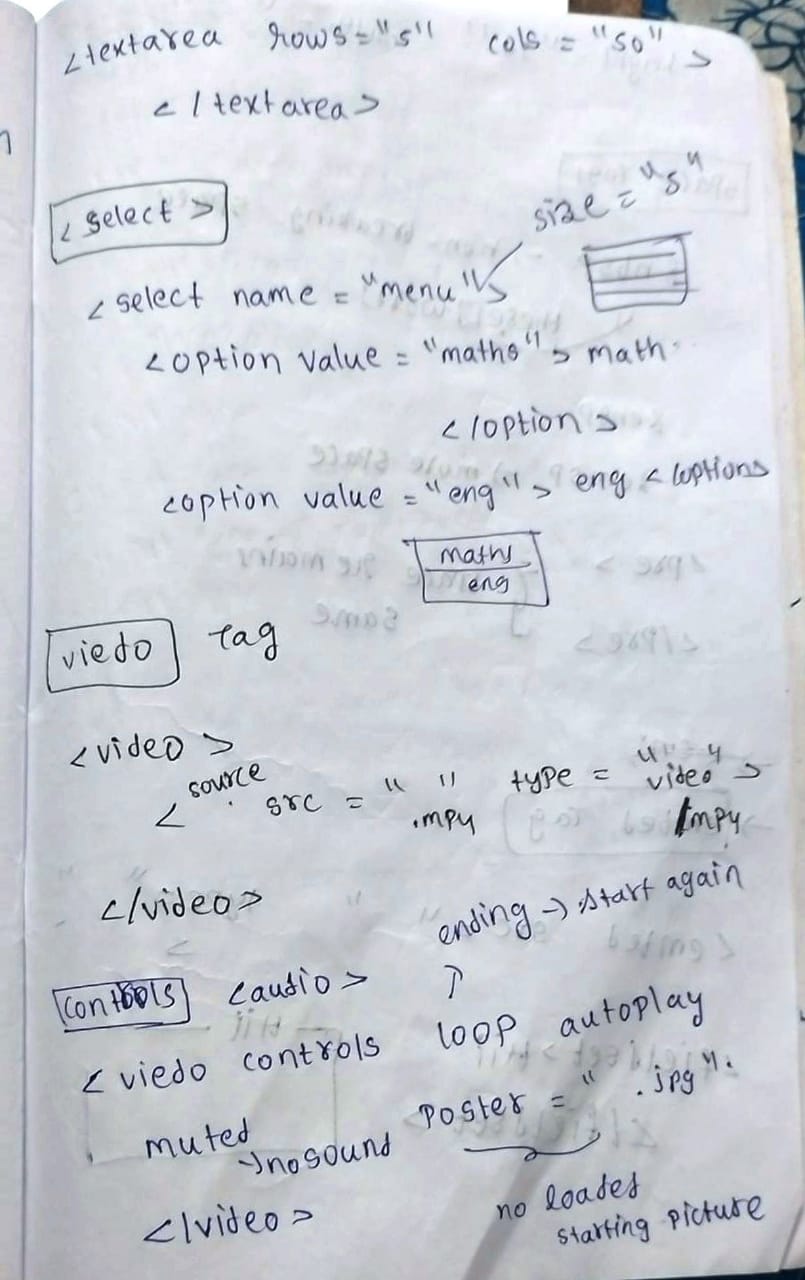 <textarea rows="5" cols = "50" >
</textarea>
<select>
size = "5"
<select name = "menu">
<option value = "maths"> math
</option>
<option value = "eng"> eng </option>
maths
eng
viedo tag
<video>
<source src = " .mp4" type = "video/mp4">
</video>
ending → start again
controls <audio>
<viedo controls loop autoplay
muted poster = " .jpg".
→ no sound
</video>
no loaded
starting picture